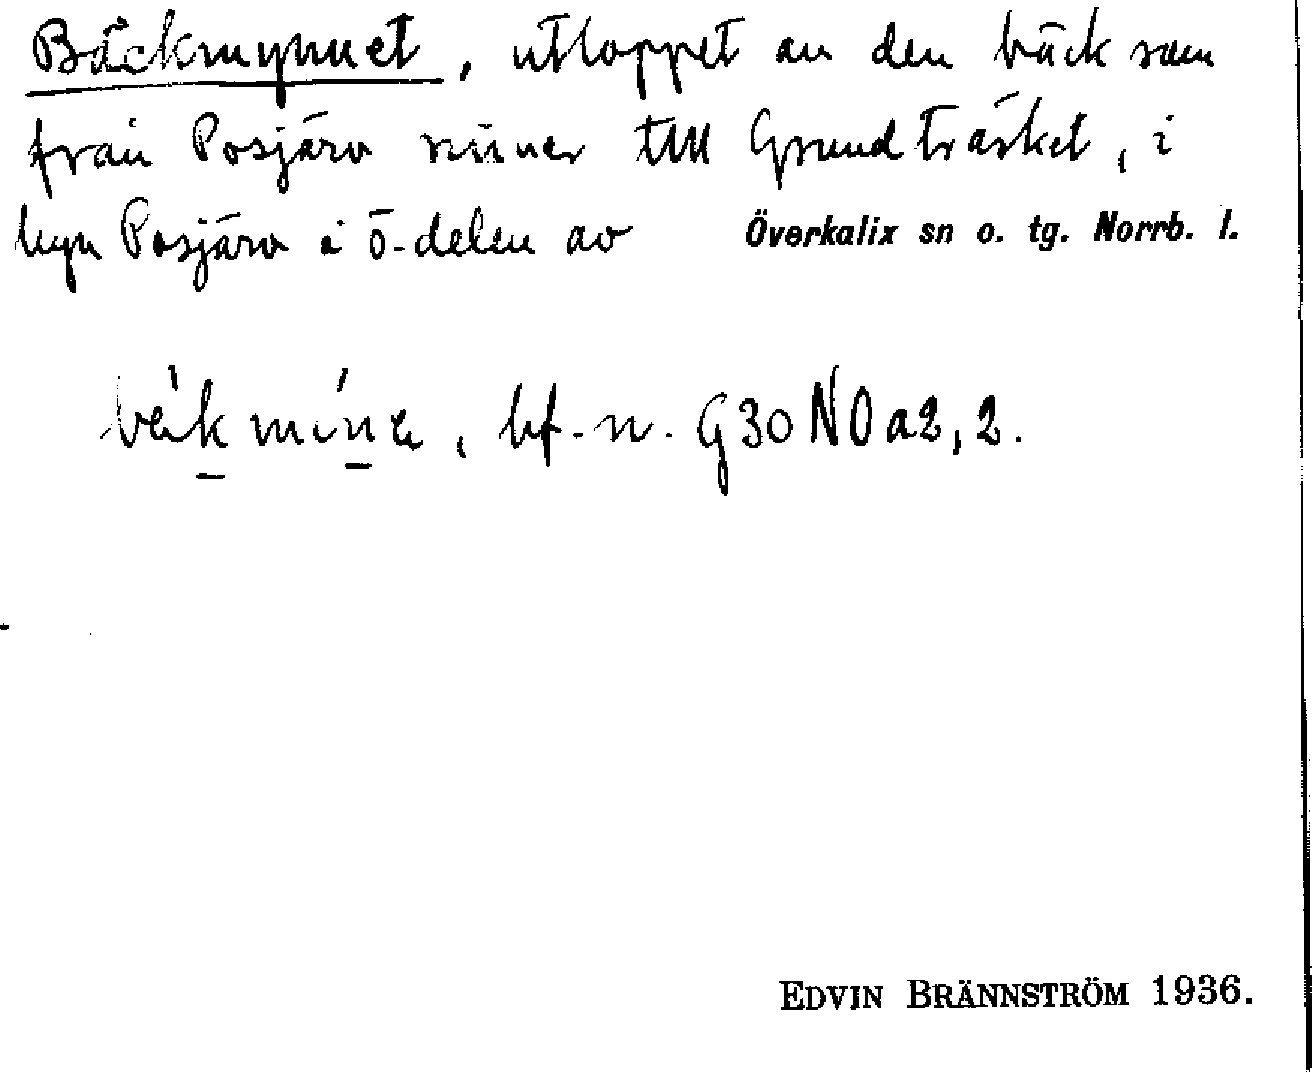 Bäckmynnet, utloppet av den bäck som
från Posjärv rinner till Grundträsket, i
byn Posjärv i ö-delen av Överkalix sn o. tg. Norrb. l.
bf.-n. G30NOa2,2.
EDVIN BRÄNNSTRÖM 1936.